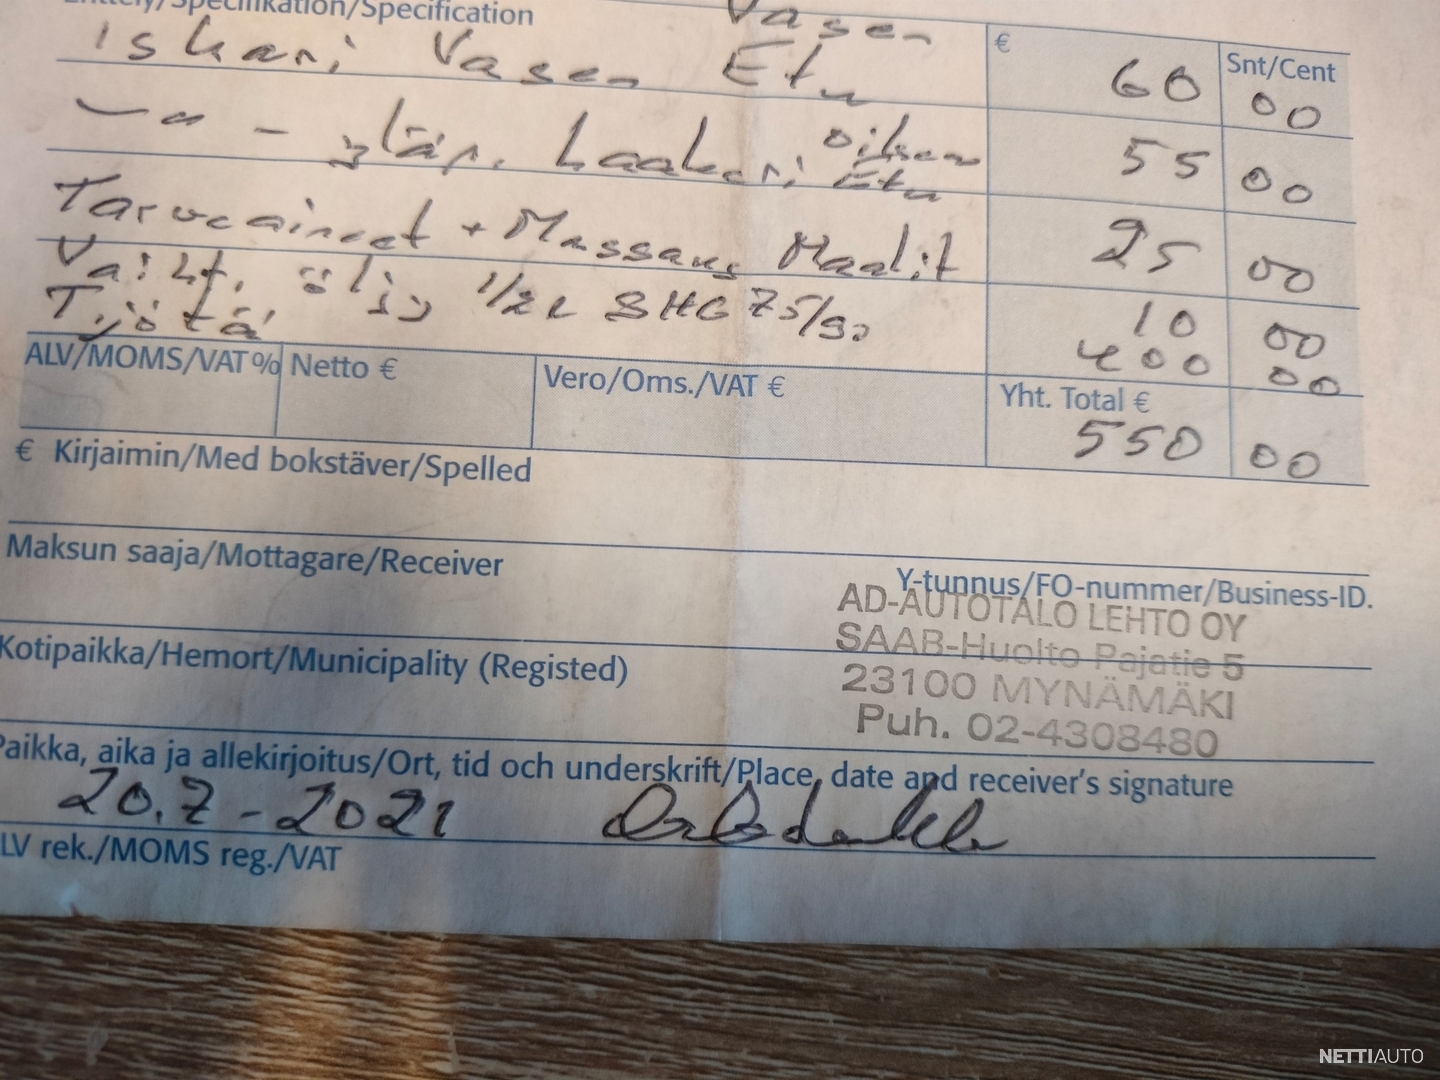 Erittely/Specifikation/Specification
Vasen
€
Snt/Cent
iskari Vasen Etu 60 00
— " — yläp. Laakeri Oikea Etu 55 00
Tarveaineet + Massaus Maalit 25 00
Vaiht. öljy 1/2 L SHC 75/90 10 00
Työtä 400 00
ALV/MOMS/VAT% Netto € Vero/Oms./VAT € Yht. Total €
550 00
€ Kirjaimin/Med bokstäver/Spelled
Maksun saaja/Mottagare/Receiver
Y-tunnus/FO-nummer/Business-ID.
AD-AUTOTALO LEHTO OY
SAAB-Huolto Pajatie 5
Kotipaikka/Hemort/Municipality (Registed)
23100 MYNÄMÄKI
Puh. 02-4308480
Paikka, aika ja allekirjoitus/Ort, tid och underskrift/Place, date and receiver's signature
20.7-2021
LV rek./MOMS reg./VAT
NETTIAUTO